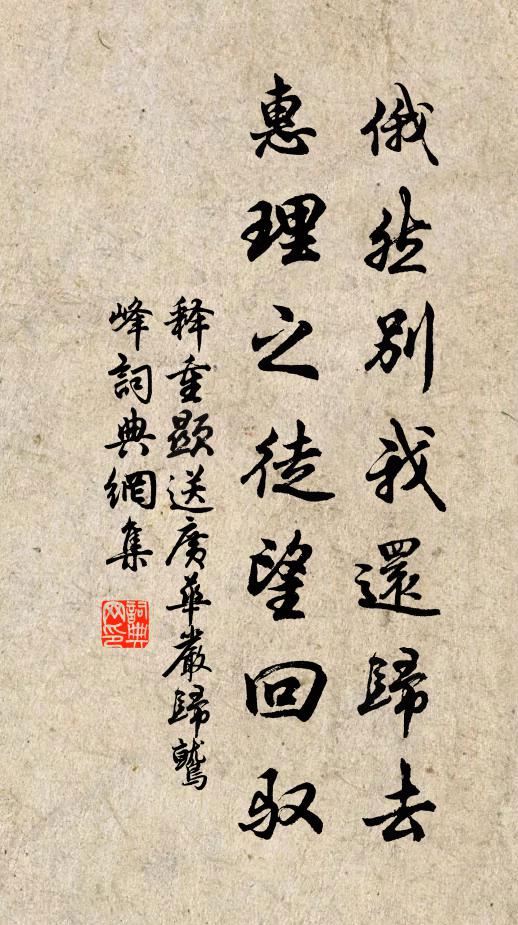 俄然别我還歸去
惠理之徒望回驭
释重顯送廣華嚴歸鷲
峰詞典網集
詞典网印